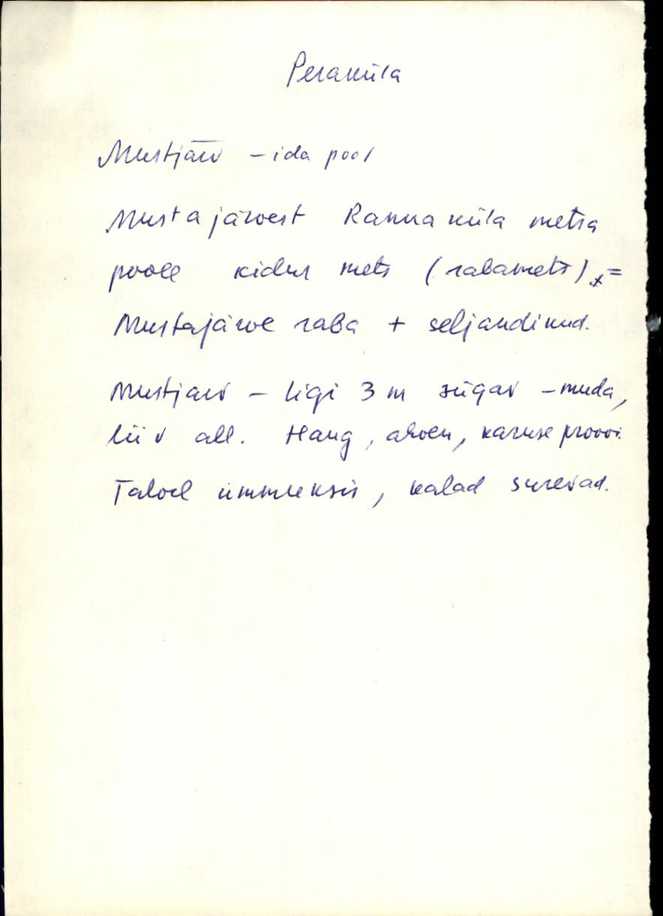 Peraküla
Mustjärv – ida pool
Mustajärvest Rannaküla metsa
poole kidur mets (rabamets) x =
Mustajärve raba + seljandikud.
Mustjärv – ligi 3 m sügav – muda,
liiv all. Haug, ahven,
Talvel ummuksis, kalad surevad.